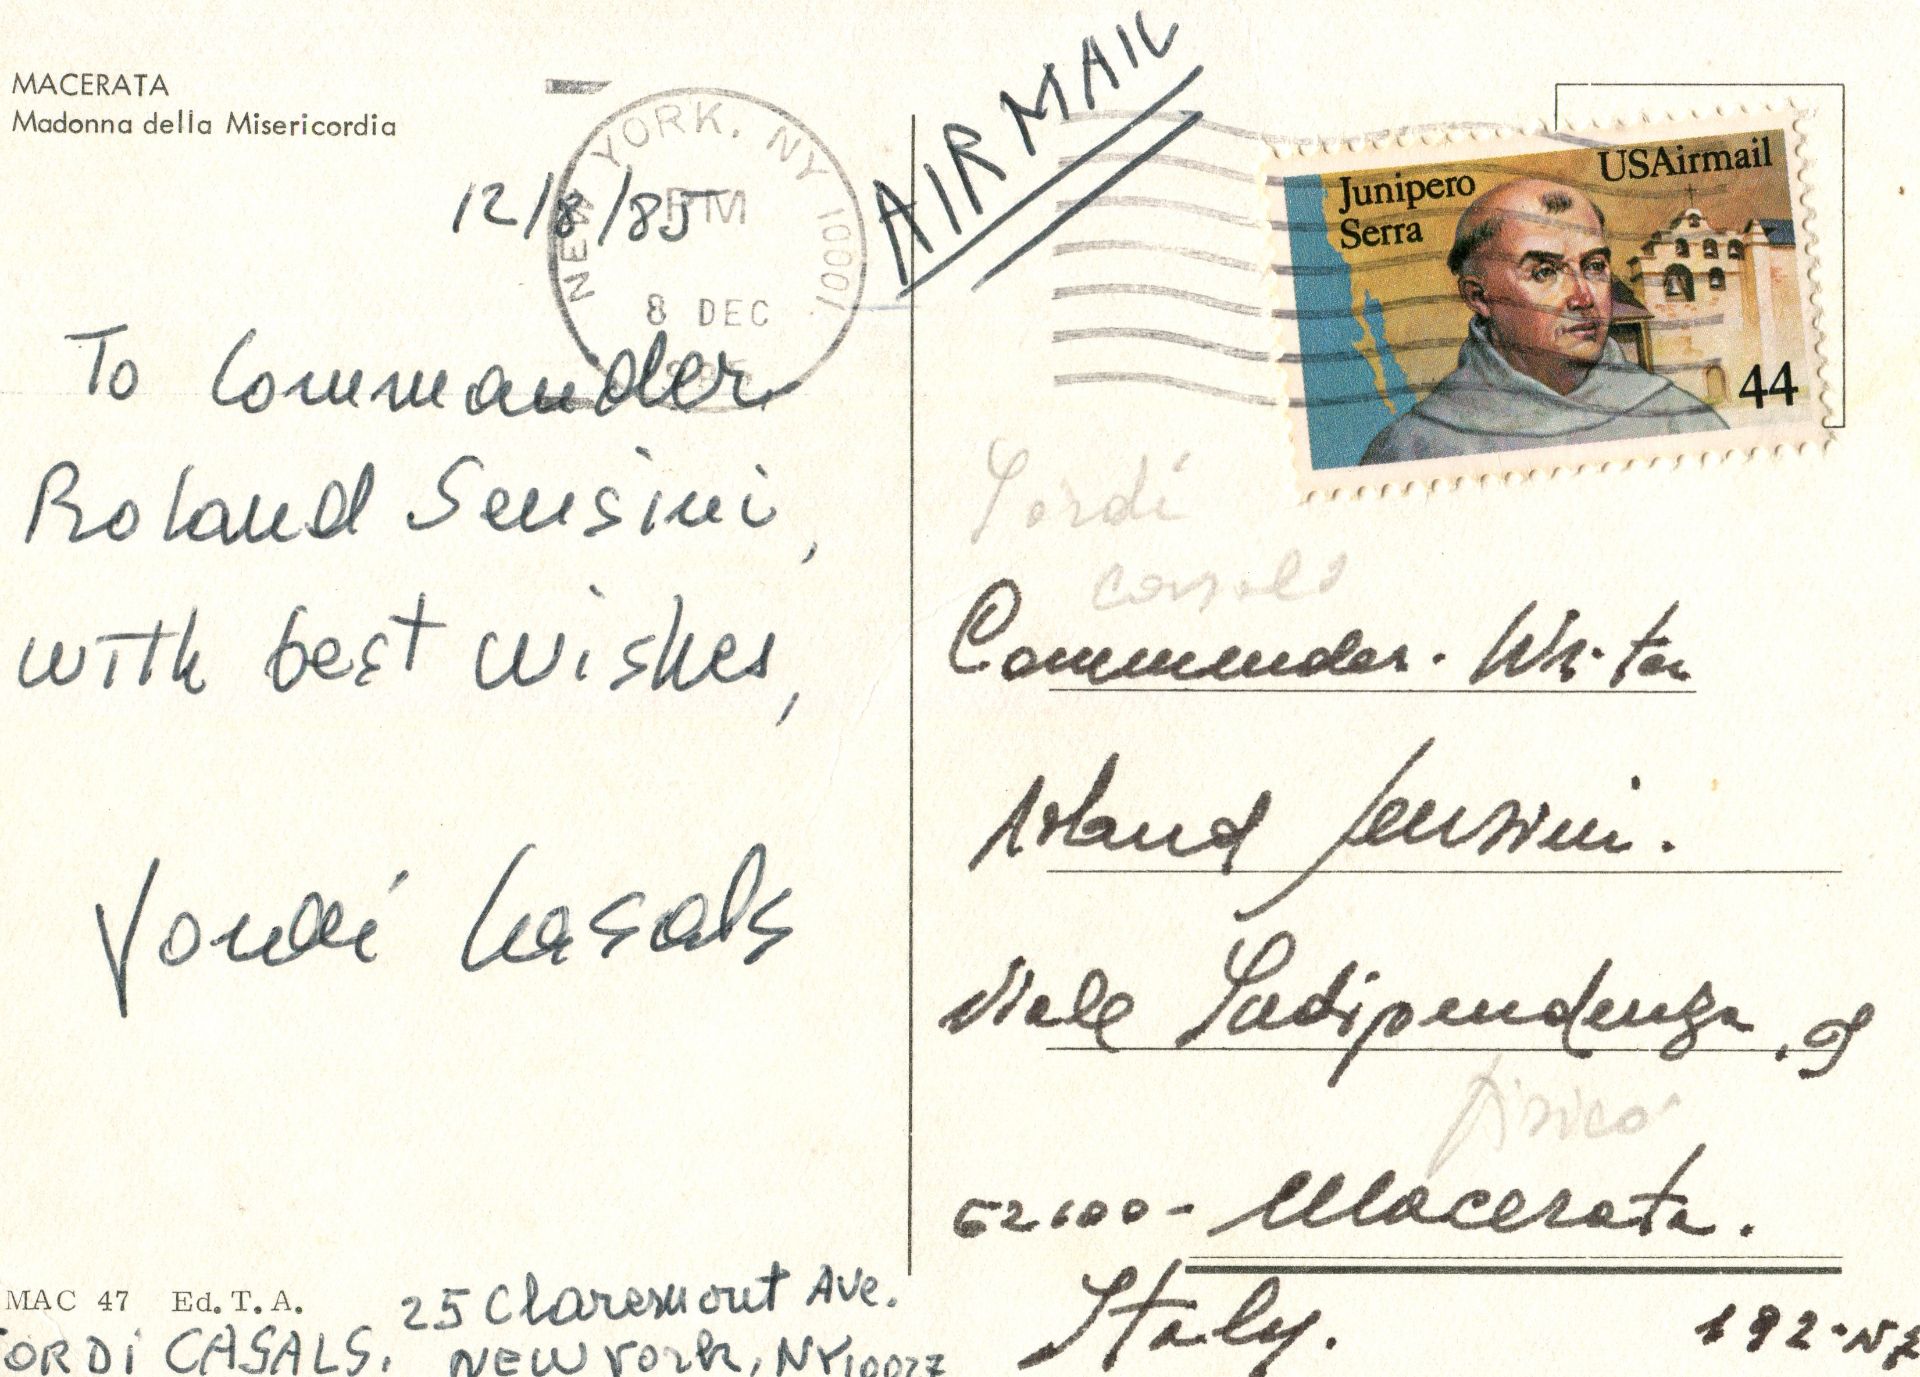 MACERATA
Madonna della Misericordia
NEW YORK, NY 10001
PM
8 DEC
12/8/85
AIRMAIL
Junipero
Serra
USAirmail
44
To Commander
Roland Sensini,
with best wishes,
Jordi Casals
MAC 47 Ed. T. A.
JORDI CASALS. 25 Claremont Ave.
NEW York, NY 10027
Jordi
Casals
Commander. Writer
Roland Sensini.
Viale Indipendenza, 9
fisico
62100 - Macerata.
Italy.
192-NZ